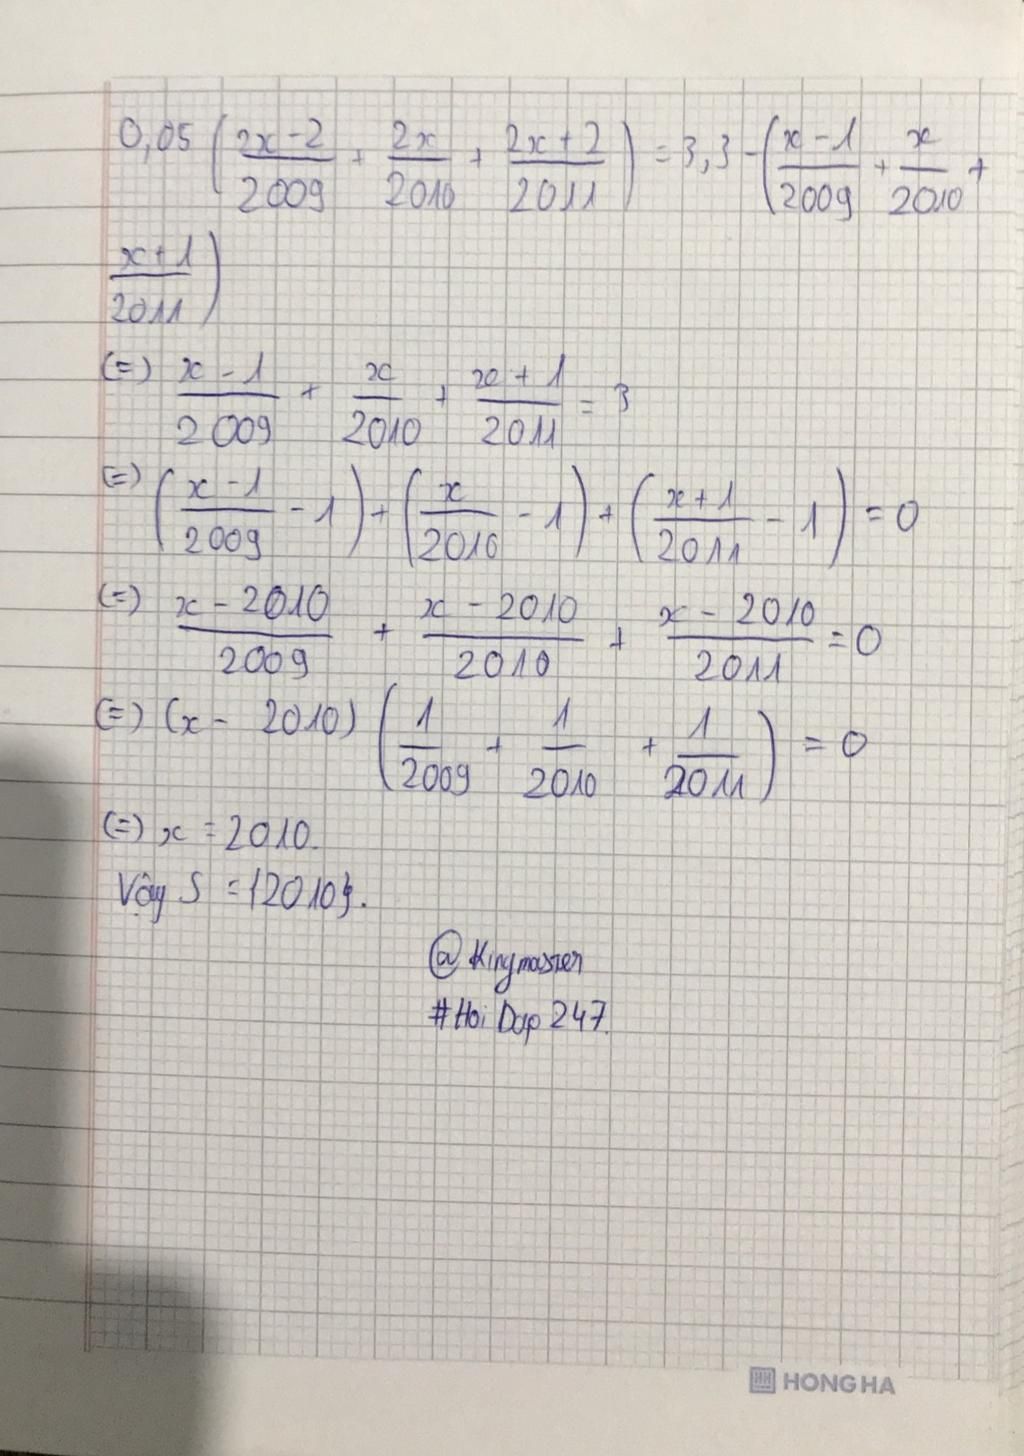 0,05 ( (2x-2)/2009 + 2x/2010 + (2x+2)/2011 ) = 3,3 - ( (x-1)/2009 + x/2010 +
(x+1)/2011 )
(=) (x-1)/2009 + x/2010 + (x+1)/2011 = 3
(=) ( (x-1)/2009 - 1 ) + ( x/2010 - 1 ) + ( (x+1)/2011 - 1 ) = 0
(=) (x-2010)/2009 + (x-2010)/2010 + (x-2010)/2011 = 0
(=) (x - 2010) ( 1/2009 + 1/2010 + 1/2011 ) = 0
(=) x = 2010.
Vậy S = {2010}.
@Kingmaster
#Hoi Dap 247.
HH HONG HA